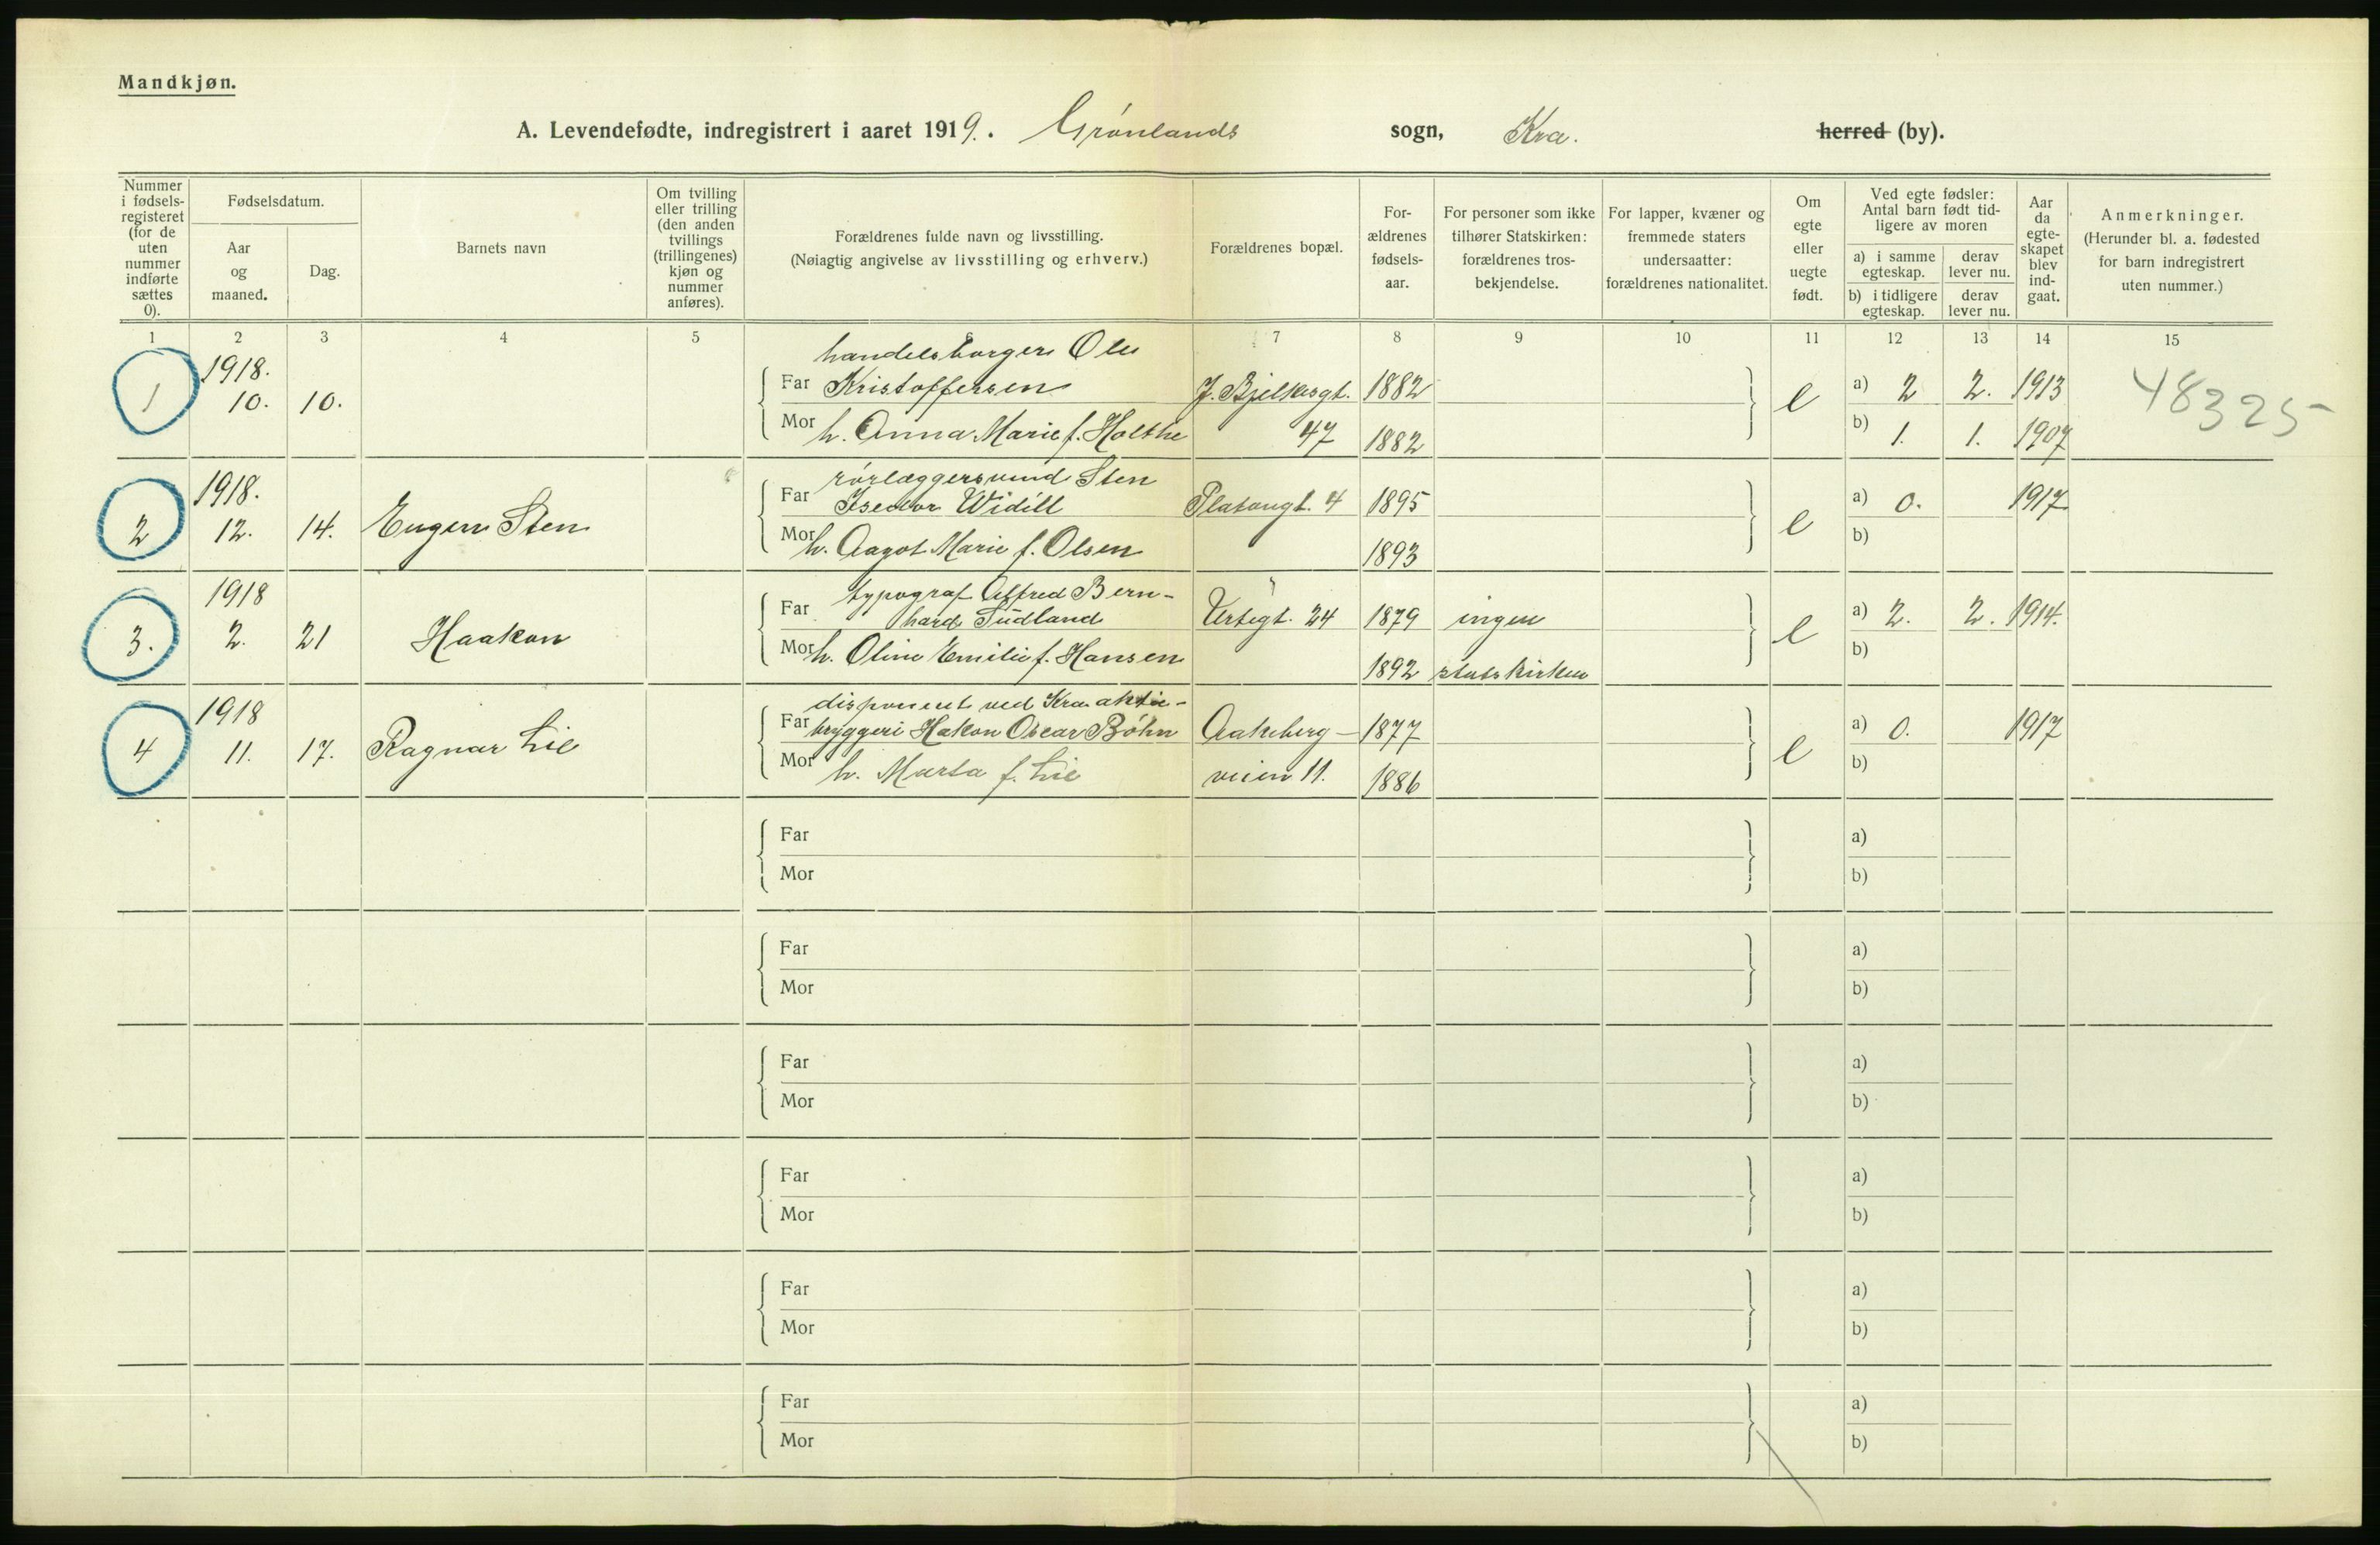 Mandkjøn.
A. Levendefødte, indregistrert i aaret 1919. Grønlands sogn, Kra. herred (by).
Nummer i fødsels-registeret (for de uten nummer indførte sættes 0).
Fødselsdatum.
Aar og maaned.
Dag.
Barnets navn
Om tvilling eller trilling (den anden tvillings (trillingenes) kjøn og nummer anføres).
Forældrenes fulde navn og livsstilling.
(Nøiagtig angivelse av livsstilling og erhverv.)
Forældrenes bopæl.
For-ældrenes fødsels-aar.
For personer som ikke tilhører Statskirken: forældrenes tros-bekjendelse.
For lapper, kvæner og fremmede staters undersaatter: forældrenes nationalitet.
Om egte eller uegte født.
Ved egte fødsler: Antal barn født tid-ligere av moren
a) i samme egteskap.
derav lever nu.
b) i tidligere egteskap.
derav lever nu.
Aar da egte-skapet blev ind-gaat.
Anmerkninger.
(Herunder bl. a. fødested for barn indregistrert uten nummer.)
1 2 3 4 5 6 7 8 9 10 11 12 13 14 15
handelsborger Ole
1 1918. 10. 10. Far Kristoffersen J. Bjelkesgt. 1882 e a) 2 2. 1913 48325
Mor h. Anna Marie f. Holthe 47 1882 b) 1. 1. 1907
rørlæggersvend Sten
2 1918. 12. 14. Eugen Sten Far Widell Platougt. 4 1895 e a) 0. 1917
Mor h. Aagot Marie f. Olsen 1893 b)
typograf Alfred Bern-
3. 1918 2. 21 Haakon Far hard Sudland Urtegt. 24 1879 ingen e a) 2. 2. 1914.
Mor h. Oline Emilie f. Hansen 1892 statskirken b)
disponent ved Kra. aktie-
4 1918 11. 17. Ragnar Lie Far bryggeri Hakon Oscar Bøhn Aakeberg- 1877 e a) 0. 1917
Mor h. Marta f. Lie veien 11. 1886 b)
Far a)
Mor b)
Far a)
Mor b)
Far a)
Mor b)
Far a)
Mor b)
Far a)
Mor b)
Far a)
Mor b)